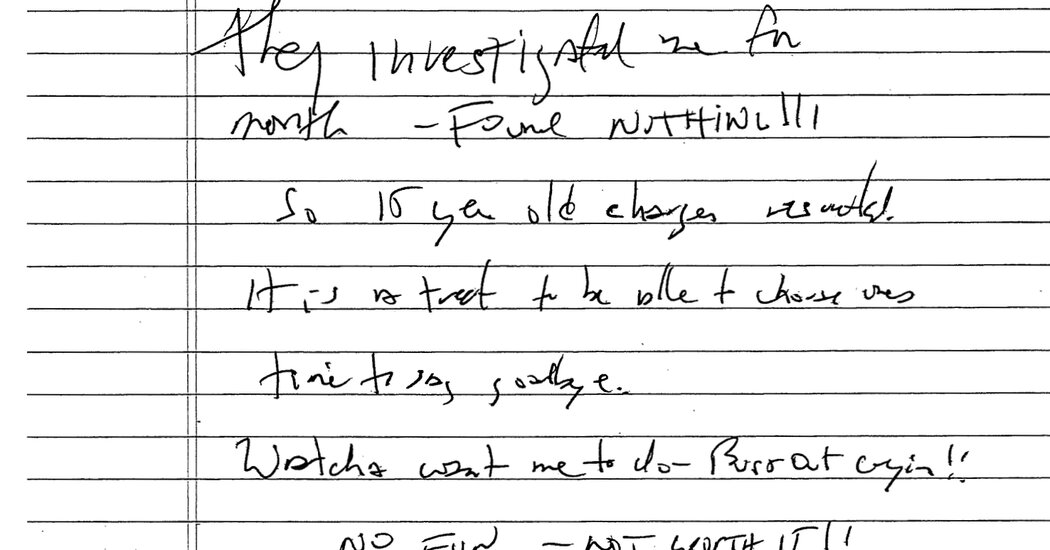 They investigated me for
month – FOUND NOTHING!!!
So 15 year old charges resulted.
It is a treat to be able to choose ones
time to say goodbye.
Watcha want me to do – Burst out cryin!!
NO FUN – NOT WORTH IT!!